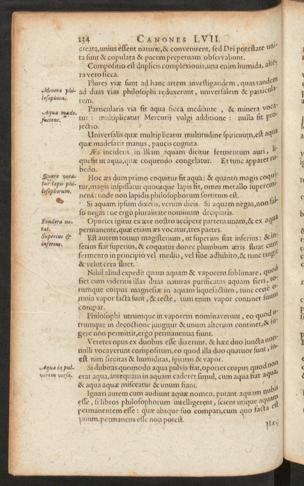 134 CANONES LVII.
creata, unius essent naturæ, & convenirent, sed Dei potestate uni-
ta sunt & copulata & pacem perpetuam observabunt.
Compositio est duplicis complexionis, una enim humida, alte-
ra vero sicca.
Plures viæ sunt ad hanc artem investigandam, quas tandem
ad duas vias philosophi reduxerunt, universalem & particula-
rem.
Particularis via fit aqua sicca mediante, & minera voca-
tur: multiplicatur Mercurij vulgi additione: nulla fit pro-
jectio.
Universalis quæ multiplicatur multitudine spirituum, est aqua
quæ madefacit manus, paucis cognita.
Æs incidens in illam aquam dicitur fermentum auri, li-
quefit in aqua, quæ coquendo congelatur. Et tunc apparet ru-
bedo.
Hoc æs dum primo coquitur fit aqua: & quanto magis coqui-
tur, magis inspissatur quousque lapis fit, omni metallo
unde non lapidis philosophorum sortitum est.
Si aquam ipsum dixeris, verum dicis. Si aquam negas, non fal-
so negas: ne ergo pluralitate nominum decipiaris.
Oportet igitur ex ære nostro accipere partem unam, & ex aqua
permanente, quæ etiam æs vocatur, tres partes.
Est autem totum magisterium, ut superius fiat inferius: & in-
ferius fiat superius, & coquatur donec plumbum æris fiat cum
fermento in principio vel medio, vel fine adhibito, & tunc
& velut cera fluet.
Nihil aliud expedit quam aquam & vaporem sublimare, quod
fiet cum videritis illas duas naturas purificatas aquam fieri, to-
tumque corpus magnetis in aquam liquefactum, tunc o-
mnia vapor facta sunt, & recte, tum enim vapor continet suum
compar.
Philosophi utrumque in vaporem nominaverunt, eo quod u-
trumque in decoctione jungitur & unum alterum continet, &
gere non permittit, ergo permanentia sunt.
Veteres opus ex duobus esse dixerunt, & hæc duo juncta non-
nulli vocaverunt compositum, eo quod illa duo quatuor sunt, in-
est nim siccitas & humiditas, spiritus & vapor.
Si dubitas quomodo aqua pulvis fiat, oportet corpus quod non
erat aqua, antequam in aquam caderet simul, cum aqua fiat aqua:
& aqua aquæ misceatur & unum fiant.
Ignari autem cum audiunt aquæ nomen, putant aquam
esse, si libros philosophorum intelligerent, scirent utique aquam
permanentem esse: quæ absque suo compari, cum quo facta est
unum, permanens esse non potest.
Minera phi-
losophica.
Aqua made-
faciens.
Quare voca-
tur lapis phi-
losophorum.
Superius &
inferius.
Aqua in pul-
verem versa.